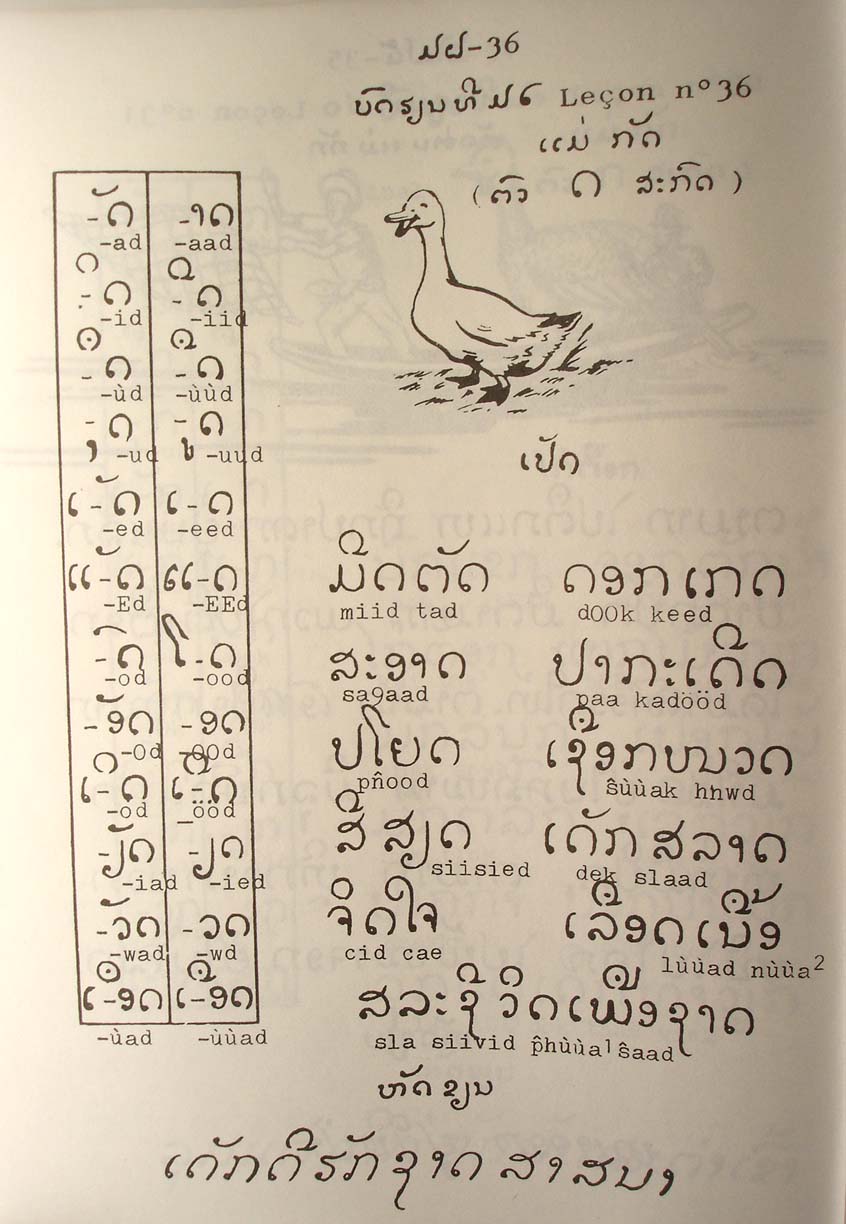 ມຝ-36
ບົດຮຽນທີ ໓໖ Leçon nº36
ແມ່ ກັດ
(ຕົວ ດ ສະກົດ)
-ັດ -າດ
-ad -aad
-ິດ -ີດ
-id -iid
-ຶດ -ືດ
-ùd -ùùd
-ຸດ -ູດ
-ud -uud
ເ-ັດ ເ-ດ
-ed -eed
ແ-ັດ ແ-ດ
-Ed -EEd
-ົດ ໂ-ດ
-od -ood
-ັອດ -ອດ
-Od -OOd
ເ-ິດ ເ-ີດ
-öd -ööd
-ັຽດ -ຽດ
-iad -ied
-ັວດ -ວດ
-wad -wd
ເ-ຶອດ ເ-ືອດ
-ùad -ùùad
ເປັດ
ມີດຕັດ ດອກເກດ
miid tad dOOk keed
ສະອາດ ປາກະເດີດ
sa9aad paa kadööd
ປໂຍດ ເຊືອກໜວດ
pñood ŝùùak hnwd
ສີສຽດ ເດັກສລາດ
siisied dek slaad
ຈິດໃຈ ເລືອດເນື້ອ
cid cae lùùad nùùa²
ສລະຊີວິດເພື່ອຊາດ
sla siivid p̂hùùa¹ŝaad
ຫັດຂຽນ
ເດັກດີຮັກຊາດ ສາສນາ